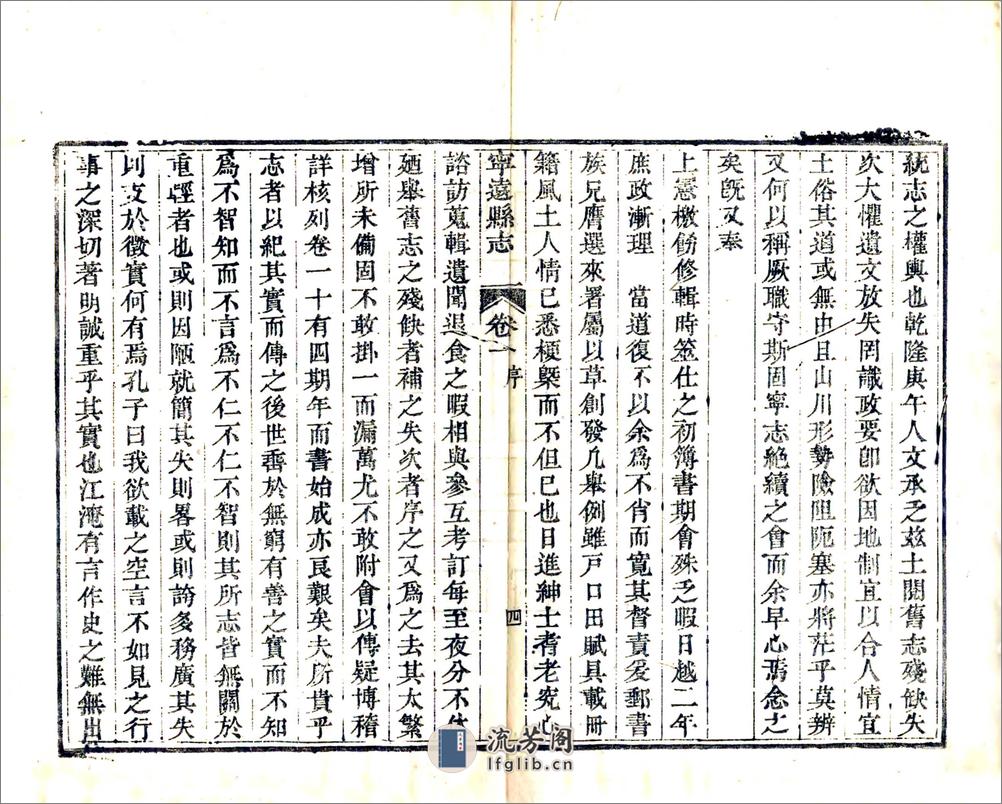 統志之權輿也乾隆庚午人文承乏茲土閱舊志殘缺失
次大懼遺文放失罔識政要卽欲因地制宜以合人情宜
土俗其道或無由且山川形勢險阻阨塞亦將茫乎莫辨
又何以稱厥職守斯固寧志絶續之會而余早心焉念之
矣旣又奉
上憲檄飭修輯時筮仕之初簿書期會殊乏暇日越二年
庶政漸理　當道復不以余爲不肖而寛其督責爰郵書
族兄膺選來署屬以草創發凡舉例雖戸口田賦具載冊
籍風土人情已悉梗槩而不但已也日進紳士耆老究心
寧遠縣志　卷一　序　四
諮訪蒐輯遺聞退食之暇相與參互考訂每至夜分不休
廼舉舊志之殘缺者補之失次者序之又爲之去其太繁
增所未備固不敢掛一而漏萬尤不敢附會以傳疑博稽
詳核列卷一十有四期年而書始成亦艮艱矣夫所貴乎
志者以紀其實而傳之後世垂於無窮有善之實而不知
爲不智知而不言爲不仁不仁不智則其所志皆無關於
重輕者也或則因陋就簡其失則畧或則誇多務廣其失
則支於徵實何有焉孔子曰我欲載之空言不如見之行
事之深切著明誠重乎其實也江淹有言作史之難無出
流芳阁
lfglib.cn